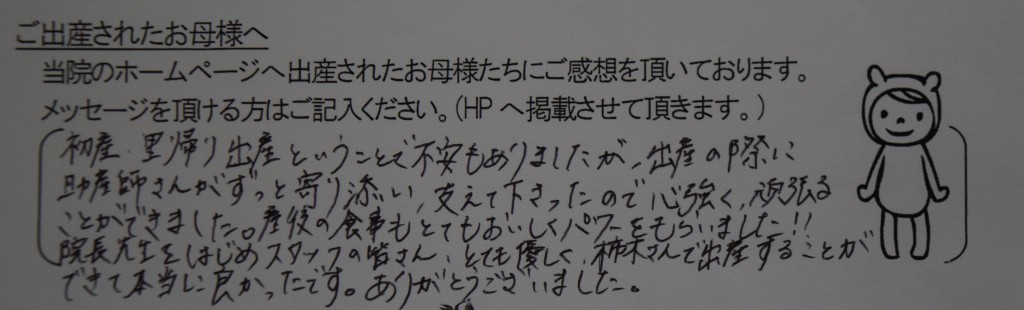 ご出産されたお母様へ
当院のホームページへ出産されたお母様たちにご感想を頂いております。
メッセージを頂ける方はご記入ください。(HP へ掲載させて頂きます。)
初産、里帰り出産ということで不安もありましたが、出産の際に
助産師さんがずっと寄り添い、支えて下さったので心強く、頑張る
ことができました。産後の食事もとてもおいしくパワーをもらいました!!
院長先生をはじめスタッフの皆さん、とても優しく、柿木さんで出産することが
できて本当に良かったです。ありがとうございました。